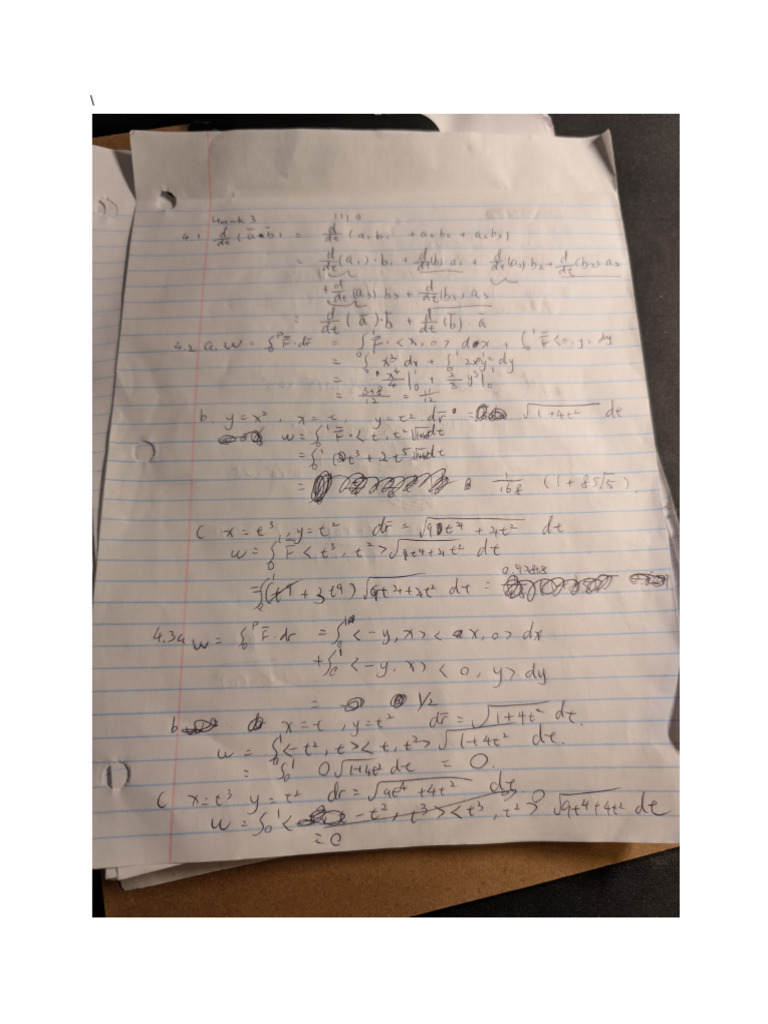 \
4.1 d/dt (ā • b̄) = d/dt (a₁b₁ + a₂b₂ + a₃b₃)
= d/dt(a₁)·b₁ + d/dt(b₁)·a₁ + d/dt(a₂)b₂ + d/dt(b₂)·a₂
+ d/dt(a₃)b₃ + d/dt(b₃)a₃
= d/dt(ā)·b̄ + d/dt(b̄)·ā
4.2 a. W = ∫₀ᴾ F̄·dr̄ = ∫₀¹ F̄·<x,0> dx + ∫₀¹ F̄<0,y> dy
= ∫₀¹ x³ dx + ∫₀¹ 2xy² dy
= x⁴/4 |₀¹ + 2/3 y³|₀¹
= 3+8/12 = 11/12
b. y=x², x=t, y=t² dr̄ = √1+4t² dt
W = ∫₀¹ F̄·<t, t²> dt
= ∫₀¹ (t³ + 2t⁵ dt
= 1/168 (1+85√5).
C x=t³, y=t² dr̄ = √9t⁴+4t² dt
W = ∫₀¹ F̄<t³, t²>√9t⁴+4t² dt
= ∫₀¹ (t⁹ + 3t⁹)√9t⁴+4t² dt =
4.3a W = ∫₀ᴾ F̄·dr = ∫₀¹ <-y, x> <x,0> dx
+ ∫₀¹ <-y, x> <0, y> dy
= 1/2
b x=t, y=t² dr̄ = √1+4t² dt.
W = ∫₀¹ <-t², t> <t, t²> √1+4t² dt.
= ∫₀¹ 0√1+4t² dt = 0.
C x=t³ y=t² dr = √9t⁴+4t² dt
W = ∫₀¹ < -t², t³> <t³, t²> 0 √9t⁴+4t² dt
= 0